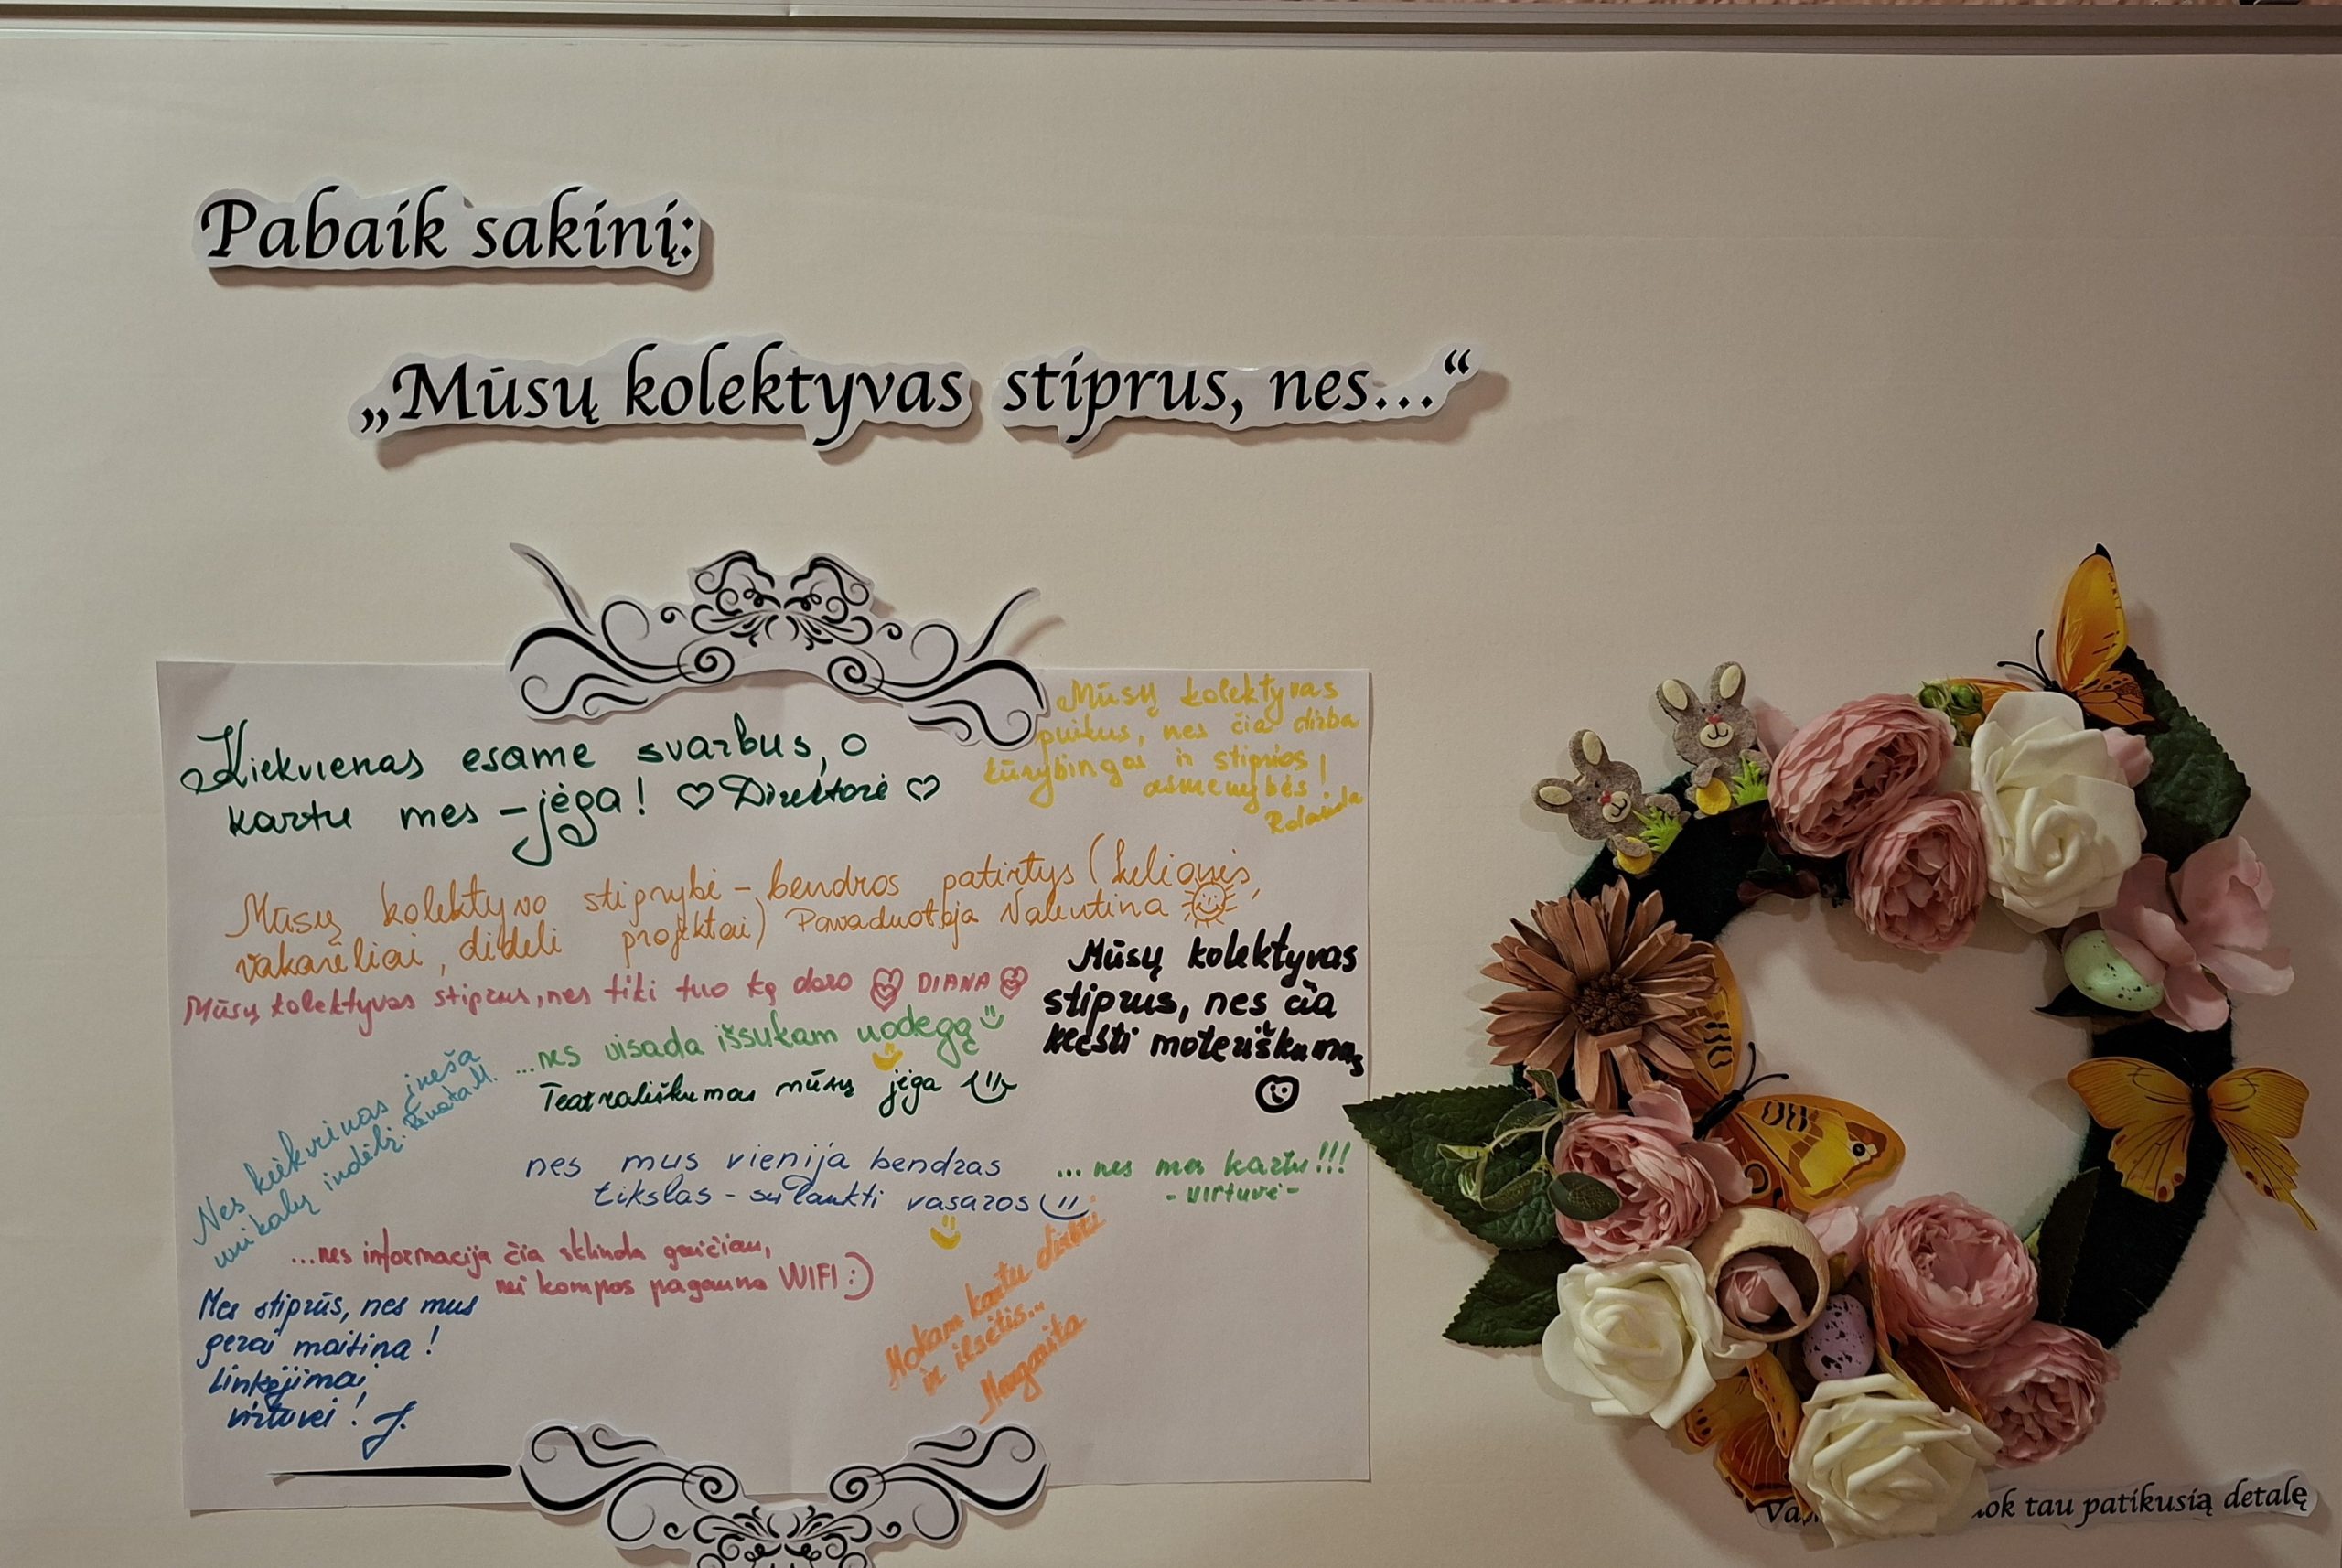 Pabaik sakinį:
„Mūsų kolektyvas stiprus, nes...“
Kiekvienas esame svarbus, o
kartu mes – jėga! ♡ Direktorė ♡
Mūsų kolektyvas
puikus, nes čia dirba
kūrybingos ir stiprios
asmenybės!
Rolanda
Mūsų kolektyvo stiprybė – bendros patirtys (kelionės,
vakarėliai, dideli projektai) Pavaduotoja Valentina
Mūsų kolektyvas stiprus, nes tiki tuo ką daro DIANA
Mūsų kolektyvas
stiprus, nes čia
moteriškumas
...nes visada išsukam uodegą
Teatrališkumas mūsų jėga
Nes kiekvienas įneša
unikalų indėlį. Renata M.
nes mus vienija bendras
tikslas - sulaukti vasaros
... nes mes kartu!!!
- virtuvė -
...nes informacija čia sklinda greičiau,
nei kompas pagauna WIFI :)
Mes stiprūs, nes mus
gerai maitina!
Linkėjimai
virtuvei! J.
Mokam kartu dirbti
ir ilsėtis...
Margarita
tau patikusią detalę